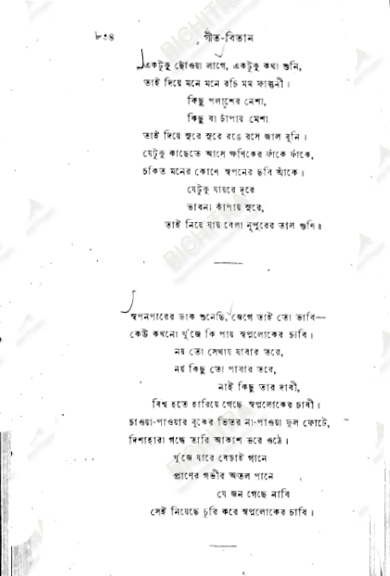 ৮০৪ গীত-বিতান
একটুকু ছোঁওয়া লাগে, একটুকু কথা শুনি,
তাই দিয়ে মনে মনে রচি মম ফাল্গুনী।
কিছু পলাশের নেশা,
কিছু বা চাঁপায় মেশা
তাই দিয়ে সুরে সুরে রঙে রসে জাল বুনি।
যেটুকু কাছেতে আসে ক্ষণিকের ফাঁকে ফাঁকে,
চকিত মনের কোণে স্বপনের ছবি আঁকে।
যেটুকু যায়রে দূরে
ভাবনা কাঁপায় সুরে,
তাই নিয়ে যায় বেলা নূপুরের তাল গুণি॥
স্বপনপারের ডাক শুনেছি, জেগে তাই তো ভাবি—
কেউ কখনো খুঁজে কি পায় স্বপ্নলোকের চাবি।
নয় তো সেথায় যাবার তরে,
নয় কিছু তো পাবার তরে,
নাই কিছু তার দাবী,
বিশ্ব হতে হারিয়ে গেছে স্বপ্নলোকের চাবী।
চাওয়া-পাওয়ার বুকের ভিতর না-পাওয়া ফুল ফোটে,
দিশাহারা গন্ধে তারি আকাশ ভরে ওঠে।
খুঁজে যারে বেড়াই গানে
প্রাণের গভীর অতল পানে
যে জন গেছে নাবি
সেই নিয়েছে চুরি করে স্বপ্নলোকের চাবি।
BICHITRA